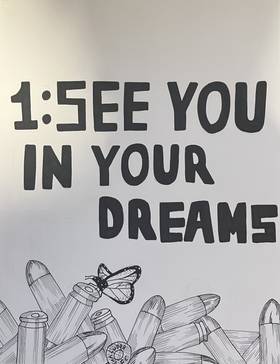 1:SEE YOU
IN YOUR
DREAMS